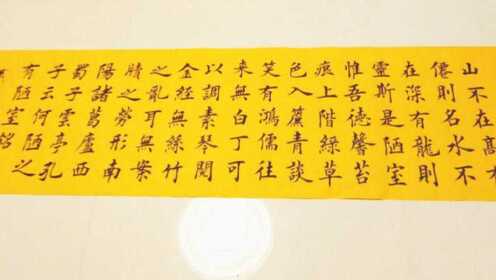 山不在高有
僊則名水不
在深有龍則
靈斯是陋室
惟吾德馨苔
痕上階綠草
色入簾青談
笑有鴻儒往
来無白丁可
以調素琴閱
金經無絲竹
之亂耳無案
牘之勞形南
陽諸葛廬西
蜀子雲亭孔
子云何陋之
有陋室銘